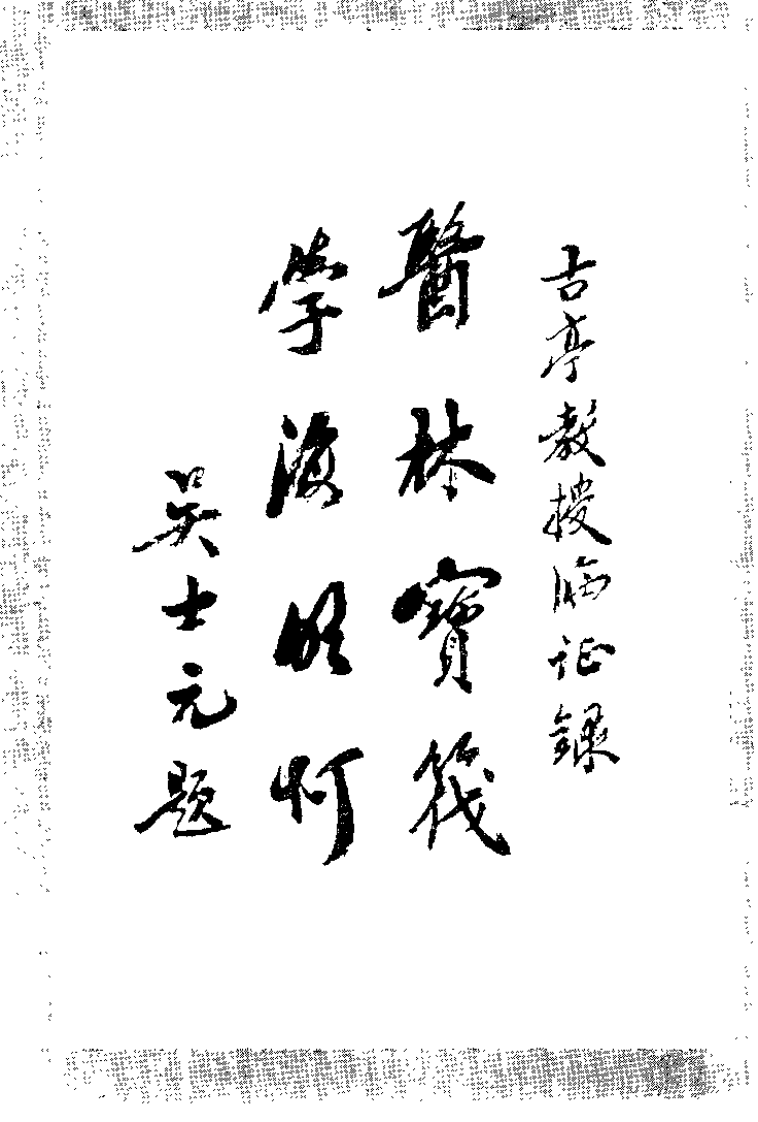 古亭教授临证録
醫林寶筏
学海明灯
吴士元题